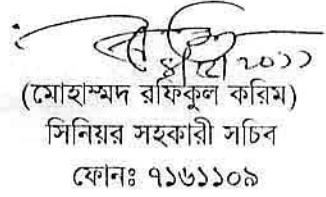 ২০১১
(মোহাম্মদ রফিকুল করিম)
সিনিয়র সহকারী সচিব
ফোনঃ ৭১৬১১০৯